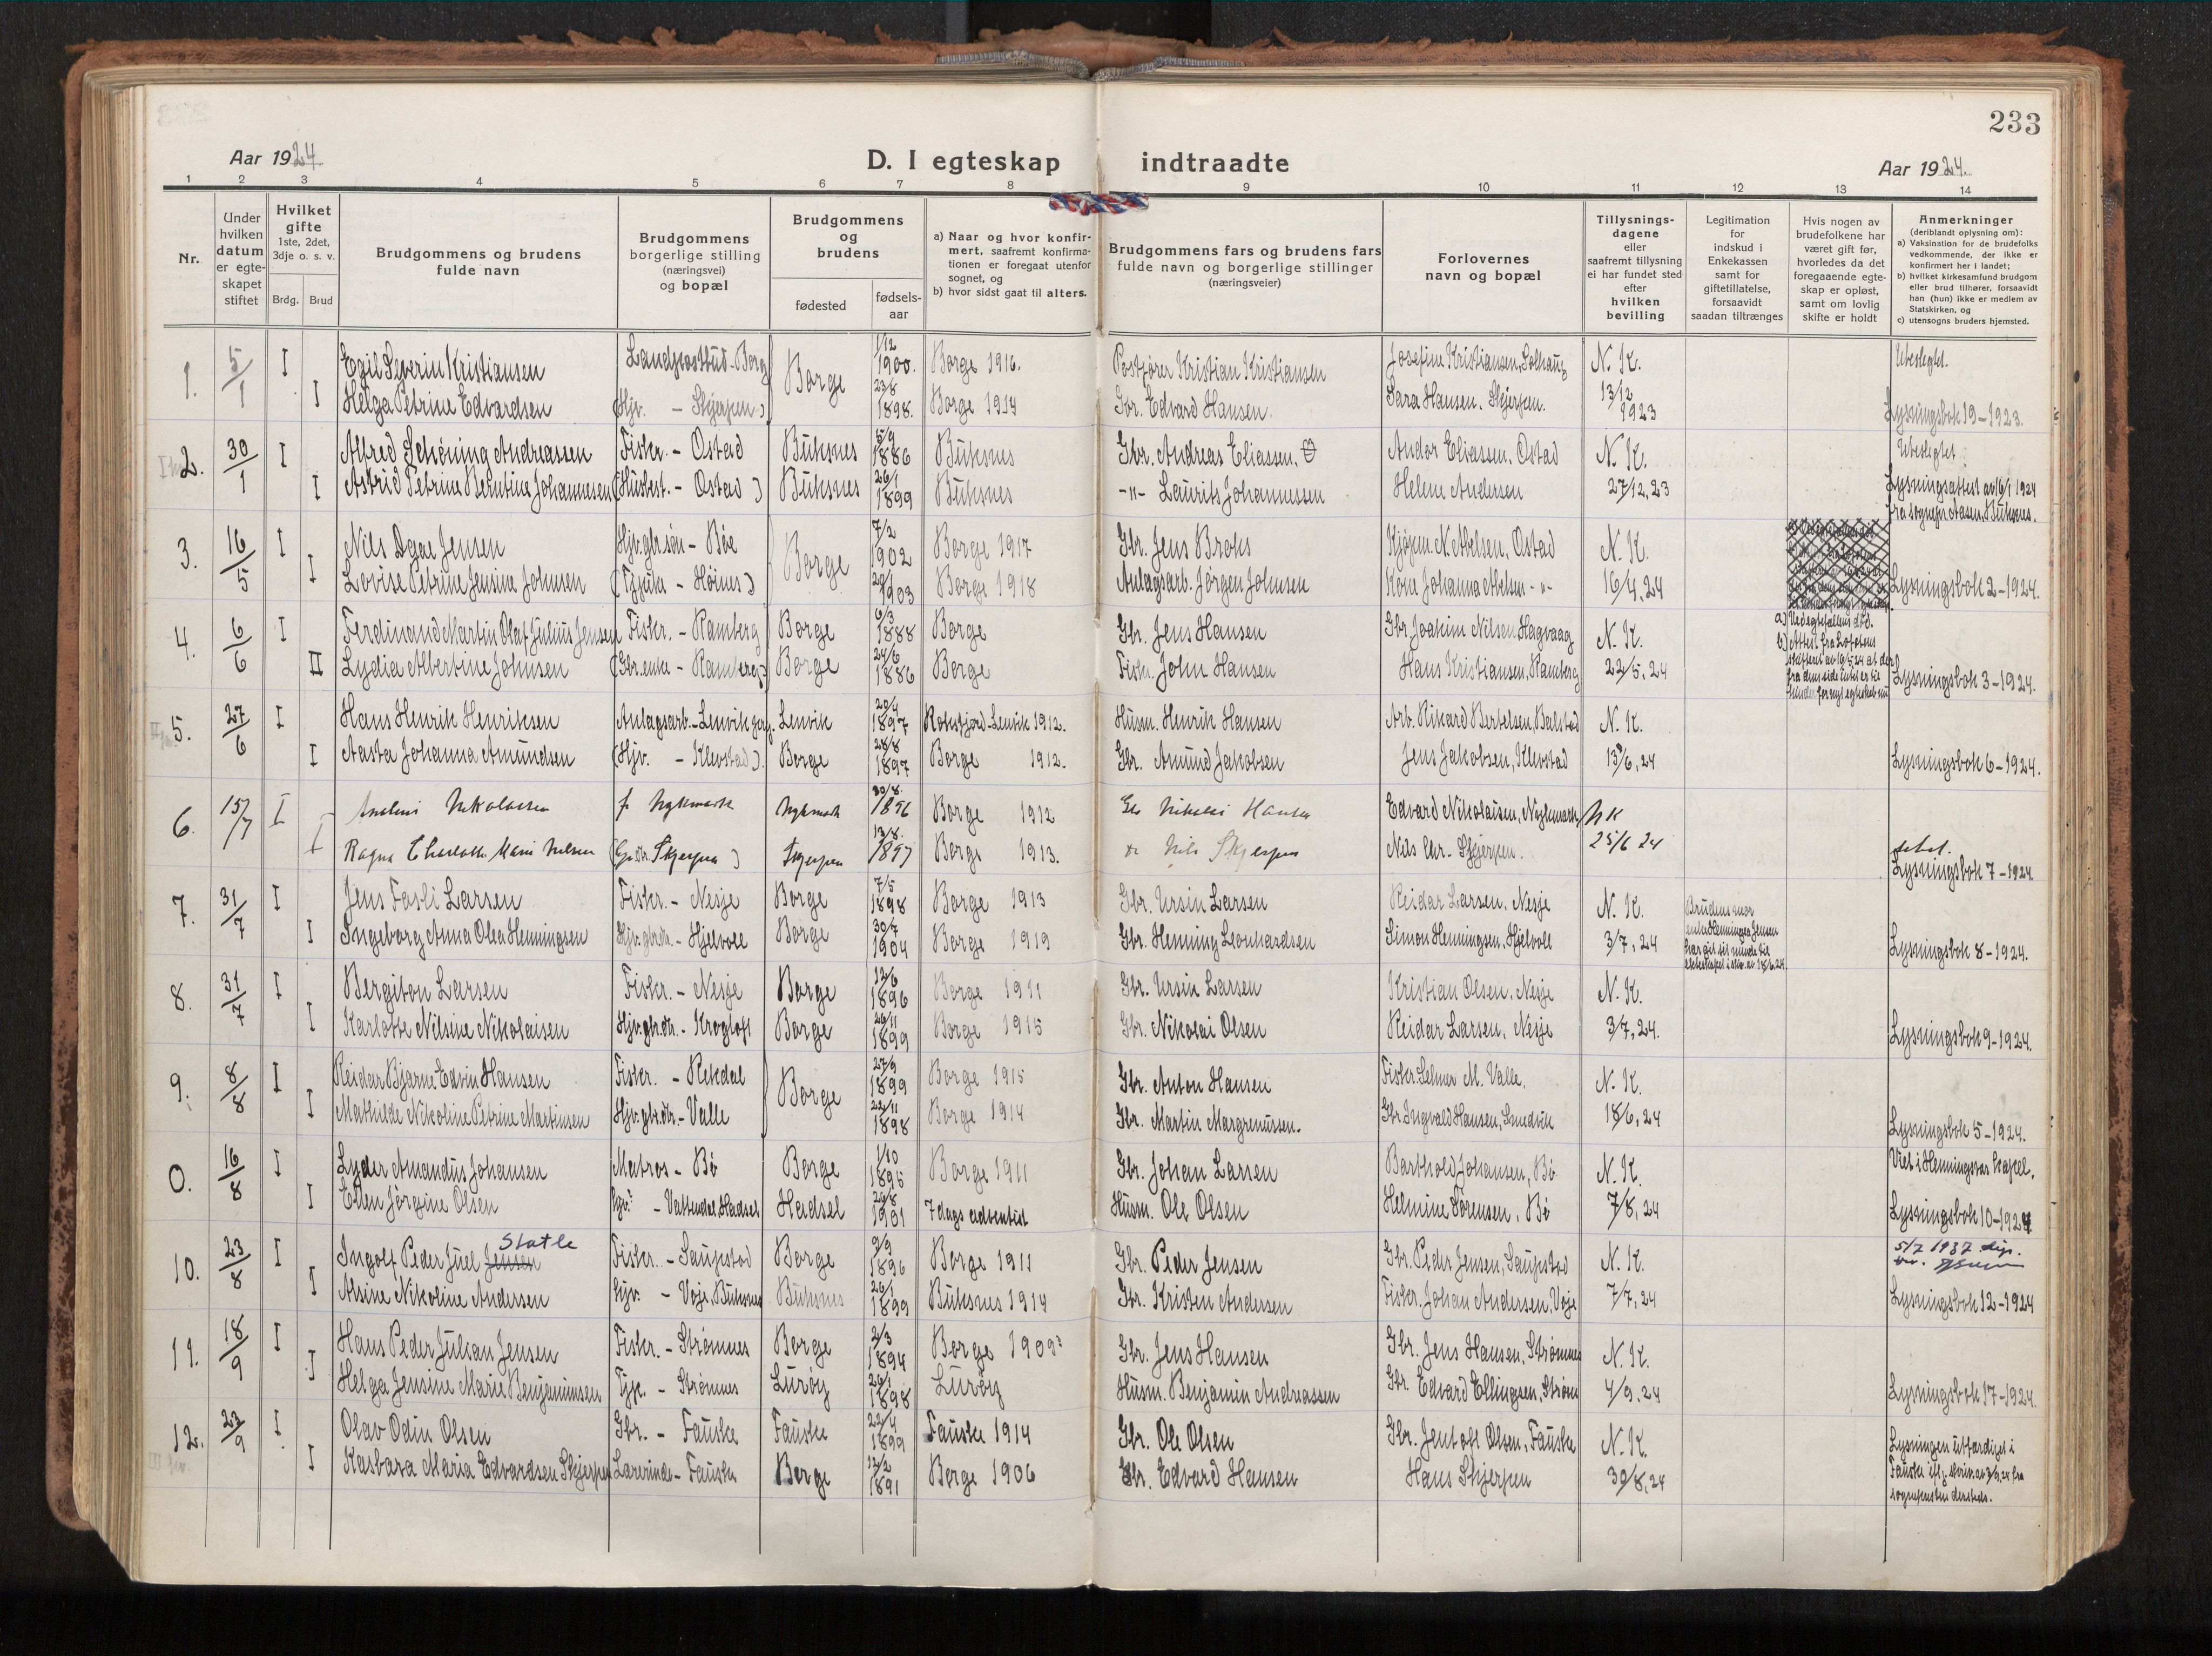 233
Aar 1924.
D. I egteskap indtraadte
Aar 1924.
1 2 3 4 5 6 7 8 9 10 11 12 13 14
Nr.
Under hvilken datum er egteskapet stiftet
Hvilket gifte
1ste, 2det, 3dje o. s. v.
Brdg. Brud
Brudgommens og brudens fulde navn
Brudgommens borgerlige stilling (næringsvei) og bopæl
Brudgommens og brudens
fødested
fødsels-aar
a) Naar og hvor konfirmert, saafremt konfirmationen er foregaat utenfor sognet, og
b) hvor sidst gaat til alters.
Brudgommens fars og brudens fars
fulde navn og borgerlige stillinger
(næringsveier)
Forlovernes
navn og bopæl
Tillysningsdagene eller saafremt tillysning ei har fundet sted efter hvilken bevilling
Legitimation for indskud i Enkekassen samt for giftetillatelse, forsaavidt saadan tiltrænges
Hvis nogen av brudefolkene har været gift før, hvorledes da det foregaaende egteskap er opløst, samt om lovlig skifte er holdt
Anmerkninger
(deriblandt oplysning om):
a) Vaksination for de brudefolks vedkommende, der ikke er konfirmert her i landet;
b) hvilket kirkesamfund brudgom eller brud tilhører, forsaavidt han (hun) ikke er medlem av Statskirken, og
c) utensogns bruders hjemsted.
1. 5/1 I Egil Severin Kristiansen Landpostbud - Borg Borge 1/12 1900. Borge 1916. Postfører Kristian Kristiansen Josefine Kristiansen, N. K. Ubeslegtet.
I Helga Petrine Edvardsen (Hjv. - Skjerpen) 23/8 1898. Borge 1914 Gbr. Edvard Hansen. Sara Hansen. Skjerpen. 13/12 1923 Lysningsbok 19-1923.
2. 30/1 I Alfred Schøning Andreassen Fisker. - Ostad Buksnes 5/9 1886 Buksnes Gbr. Andreas Eliassen. Andor Eliassen, Ostad N. K. Ubeslegtet.
I Astrid Petrine Berntine Johannesen (Husbest. - Ostad) Buksnes 26/1 1899 Buksnes -"- Laurits Johannessen Helene Andersen 27/12, 23 Lysningsattest av 16/1 1924
fra sognepr. Aasen, Buksnes.
3. 16/5 I Nils Dgae Jensen Hjv. gbr. søn - Bøe Borge 7/2 1902 Borge 1917 Gbr. Jens Broks Ostad N. K.
I Lovise Petrine Jensine Johnsen (Tjeneste - Høines) 1903 Borge 1918 Anlagsarb. Jørgen Johnsen -"- 16/4, 24 Lysningsbok 2-1924.
4. 6/6 I Ferdinand Martin Olaf Julius Jensen Fisker. - Ramberg Borge 6/3 1888 Borge Gbr. Jens Hansen Gbr Joakim Nilsen, Hagvaag N. K. a) Ved egtefællens død.
II Lydia Albertine Johnsen (Gbr. enke - Ramberg) Borge 24/6 1886 Borge Fisker John Hansen Hans Kristiansen, Ramberg 22/5, 24 Lysningsbok 3-1924.
5. 27/6 I Hans Henrik Henriksen Anlagsarb. - Lenvik Lenvik 20/4 1897 Rossfjord Lenvik 1912. Husm. Henrik Hansen Arb. Rikard Bertelsen, Balstad N. K.
I Aasta Johanna Amundsen (Hjv. - Klevstad). Borge 28/8 1897 Borge 1912. Gbr. Amund Jakobsen Jens Jakobsen, Klevstad 13/6, 24 Lysningsbok 6-1924.
6. 15/7 I Nikolaisen f. Nykmark Nykmark 30/8. 1896 Borge 1912 Gbr Nikolai Hansen Edvard Nikolaisen, Nykmark NK
I Ragna Charlotte Marie Nilsen (Gbr. dtr. Skjerpen) Skjerpen 13/8. 1897 Borge 1913. Nils Skjerpen Nils Chr. Skjerpen. 25/6 24 Lysningsbok 7-1924.
7. 31/7 I Jens Fasli Larsen Fisker. - Nesje Borge 7/5 1898 Borge 1913 Gbr. Ursin Larsen Reidar Larsen, Nesje N. K. Brudens mor
I Ingeborg Anna Olea Henningsen Hjv. gbr. dtr. - Hjelvoll Borge 30/7 1904 Borge 1919 Gbr. Henning Leonhardsen Simon Henningsen, Hjelvoll 3/7, 24 Lysningsbok 8-1924.
8. 31/7 I Bergiton Larsen Fisker. - Nesje Borge 12/6 1896 Borge 1911 Gbr. Ursin Larsen Kristian Olsen, Nesje N. K.
I Karlotte Nilsine Nikolaisen Hjv. gbr. dtr. - Krogtoft Borge 26/11 1899 Borge 1915 Gbr. Nikolai Olsen Reidar Larsen, Nesje 3/7, 24. Lysningsbok 9-1924.
9. 8/8 I Reidar Bjarne Edvin Hansen Fisker. - Rekdal Borge 27/9 1899 Borge 1915 Gbr. Anton Hansen Fisker Selmer M. Valle, N. K.
I Mathilde Nikoline Petrine Martinsen Hjv. gbr. dtr. - Valle 22/11 1898 Borge 1914 Gbr. Martin Margrenussen. Gbr Ingvald Hansen, Smedvik 18/6, 24 Lysningsbok 5-1924.
0. 16/8 I Lyder Amandus Johansen Matros - Bø Borge 1/10 1895 Borge 1911 Gbr. Johan Larsen Barthold Johansen, Bø N. K. Viet i Henningsvær kapel.
I Ellen Jørgine Olsen Hjv. - Vattendal, Hadsel Hadsel 29/8 1901 7 dags adventist Husm. Ole Olsen Helmine Sørensen, Bø 7/8, 24 Lysningsbok 10-1924
10. 23/8 I Ingolf Peder Juel Jensen Slatle Fisker. - Saupstad Borge 9/9 1896 Borge 1911 Gbr. Peder Jensen Gbr. Peder Jensen, Saupstad N. K. 5/7 1937
I Alsine Nikoline Andersen Hjv. - Voje, Buksnes Buksnes 26/1 1899 Buksnes 1914 Gbr. Kristen Andersen Fisker. Johan Andersen, Voje 7/7, 24 Lysningsbok 12-1924
11. 18/9 I Hans Peder Julian Jensen Fisker. - Strømnes Borge 2/3 1894 Borge 1909? Gbr. Jens Hansen Gbr. Jens Hansen, Strømnes N. K.
I Helga Jensine Marie Benjaminsen Tje. - Strømnes Lurøy 26/1 1898 Lurøy Husm. Benjamin Andreassen Gbr. Edvard Ellingsen, Strømn 4/9, 24 Lysningsbok 17-1924.
12. 23/9 I Olav Odin Olsen Gbr. - Fauske Fauske 22/4 1899 Fauske 1914 Gbr. Ole Olsen Gbr. Jentoft Olsen, Fauske N. K. Lysningen utfærdiget i
I Karbara Maria Edvardsen Skjerpen Lærerinde - Fauske Borge 12/2 1891 Borge 1906 Gbr. Edvard Hansen Hans Skjerpen 30/8, 24 Fauske
sognepresten dersteds.